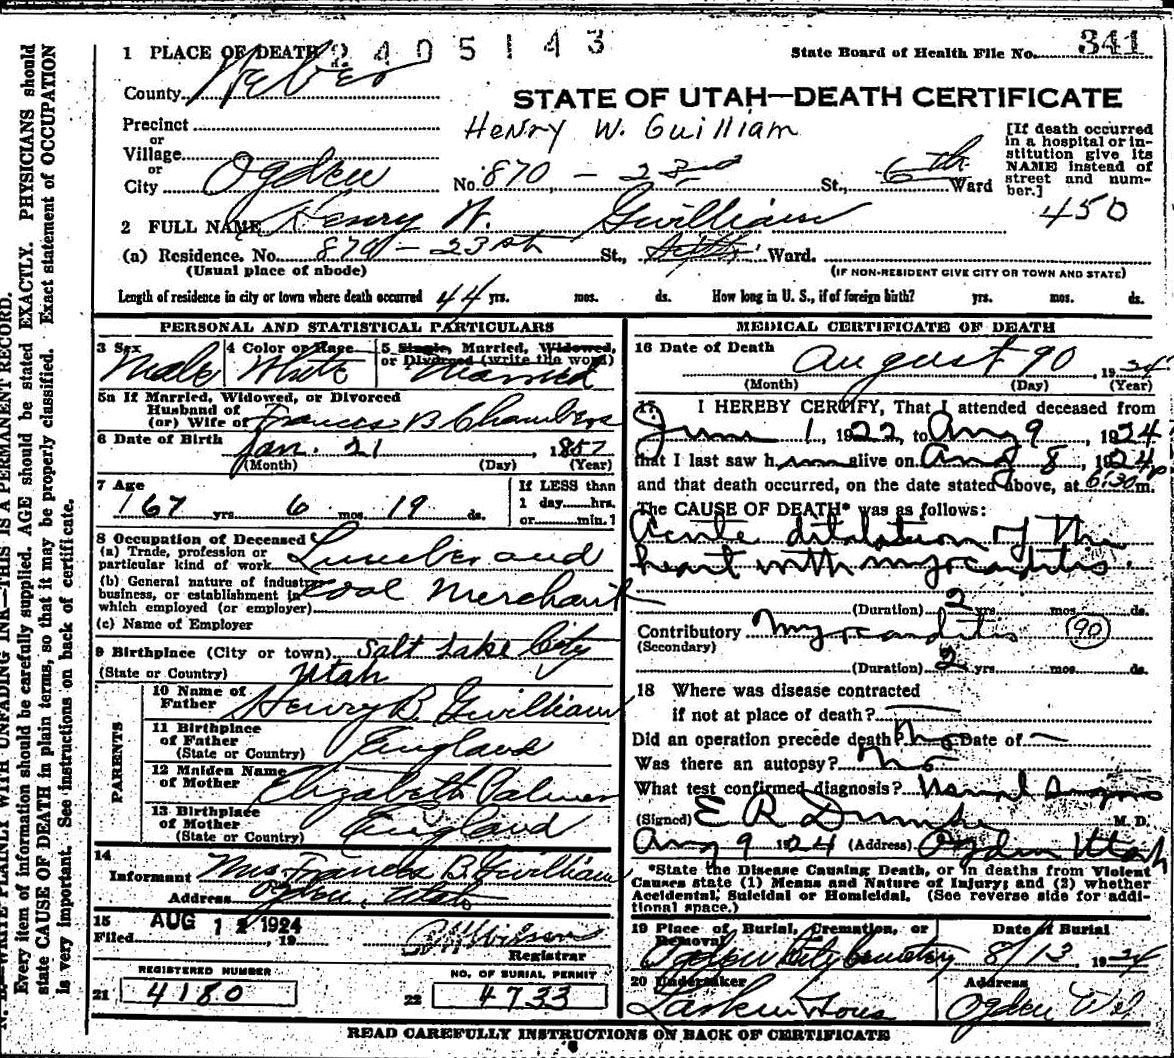 1 PLACE OF DEATH 2405143
State Board of Health File No. 341
County Weber
STATE OF UTAH—DEATH CERTIFICATE
Precinct
Henry W. Guilliam
or
Village
or
City Ogden No. 870 - 23rd St., 6th Ward
[If death occurred
in a hospital or in-
stitution give its
NAME instead of
street and num-
ber.]
450
2 FULL NAME Henry W. Gwilliam
(a) Residence. No. 870 - 23 St., Ward.
(Usual place of abode)
(IF NON-RESIDENT GIVE CITY OR TOWN AND STATE)
Length of residence in city or town where death occurred 44 yrs. mos. ds. How long in U. S., if of foreign birth? yrs. mos. ds.
PERSONAL AND STATISTICAL PARTICULARS
3 Sex Male
4 Color or Race White
5 Single, Married, Widowed,
or Divorced (write the word)
Married
5a If Married, Widowed, or Divorced
Husband of
(or) Wife of Frances B Chambers
6 Date of Birth Jan. 21, 1857
(Month) (Day) (Year)
7 Age 67 yrs. 6 mos. 19 ds.
If LESS than
1 day......hrs.
or......min.
8 Occupation of Deceased
(a) Trade, profession or
particular kind of work Lumber and
(b) General nature of industry
business, or establishment in
which employed (or employer) Coal Merchant
(c) Name of Employer
9 Birthplace (City or town) Salt Lake City
(State or Country) Utah
PARENTS
10 Name of
Father Henry B. Gwilliam
11 Birthplace
of Father
(State or Country) England
12 Maiden Name
of Mother Elizabeth Palmer
13 Birthplace
of Mother
(State or Country) England
14
Informant Mrs. Frances B. Gwilliam
Address Ogden, Utah
15 AUG 12 1924
Filed , 19
Registrar
REGISTERED NUMBER
21 4180
NO. OF BURIAL PERMIT
22 4733
MEDICAL CERTIFICATE OF DEATH
16 Date of Death August 9 1924
(Month) (Day) (Year)
17 I HEREBY CERTIFY, That I attended deceased from
June 1, 1922, to Aug 9, 1924
that I last saw him alive on Aug 8, 1924
and that death occurred, on the date stated above, at 6:30 p m.
The CAUSE OF DEATH* was as follows:
Acute dilatation of the
heart with myocarditis.
(Duration) 2 yrs. mos. ds.
Contributory Myocarditis 90
(Secondary)
(Duration) 2 yrs. mos. ds.
18 Where was disease contracted
if not at place of death?
Did an operation precede death? No Date of —
Was there an autopsy? No
What test confirmed diagnosis?
(Signed) E R Dumke M. D.
Aug 9 1924 (Address) Ogden Utah
*State the Disease Causing Death, or in deaths from Violent
Causes state (1) Means and Nature of Injury; and (2) whether
Accidental, Suicidal or Homicidal. (See reverse side for addi-
tional space.)
19 Place of Burial, Cremation, or
Removal
Ogden City Cemetery
Date of Burial
8/13, 1924
20 Undertaker
Larkin & Sons
Address
Ogden
READ CAREFULLY INSTRUCTIONS ON BACK OF CERTIFICATE
N. B.—WRITE PLAINLY WITH UNFADING INK—THIS IS A PERMANENT RECORD.
Every item of information should be carefully supplied. AGE should be stated EXACTLY. PHYSICIANS should
state CAUSE OF DEATH in plain terms, so that it may be properly classified. Exact statement of OCCUPATION
is very important. See instructions on back of certificate.